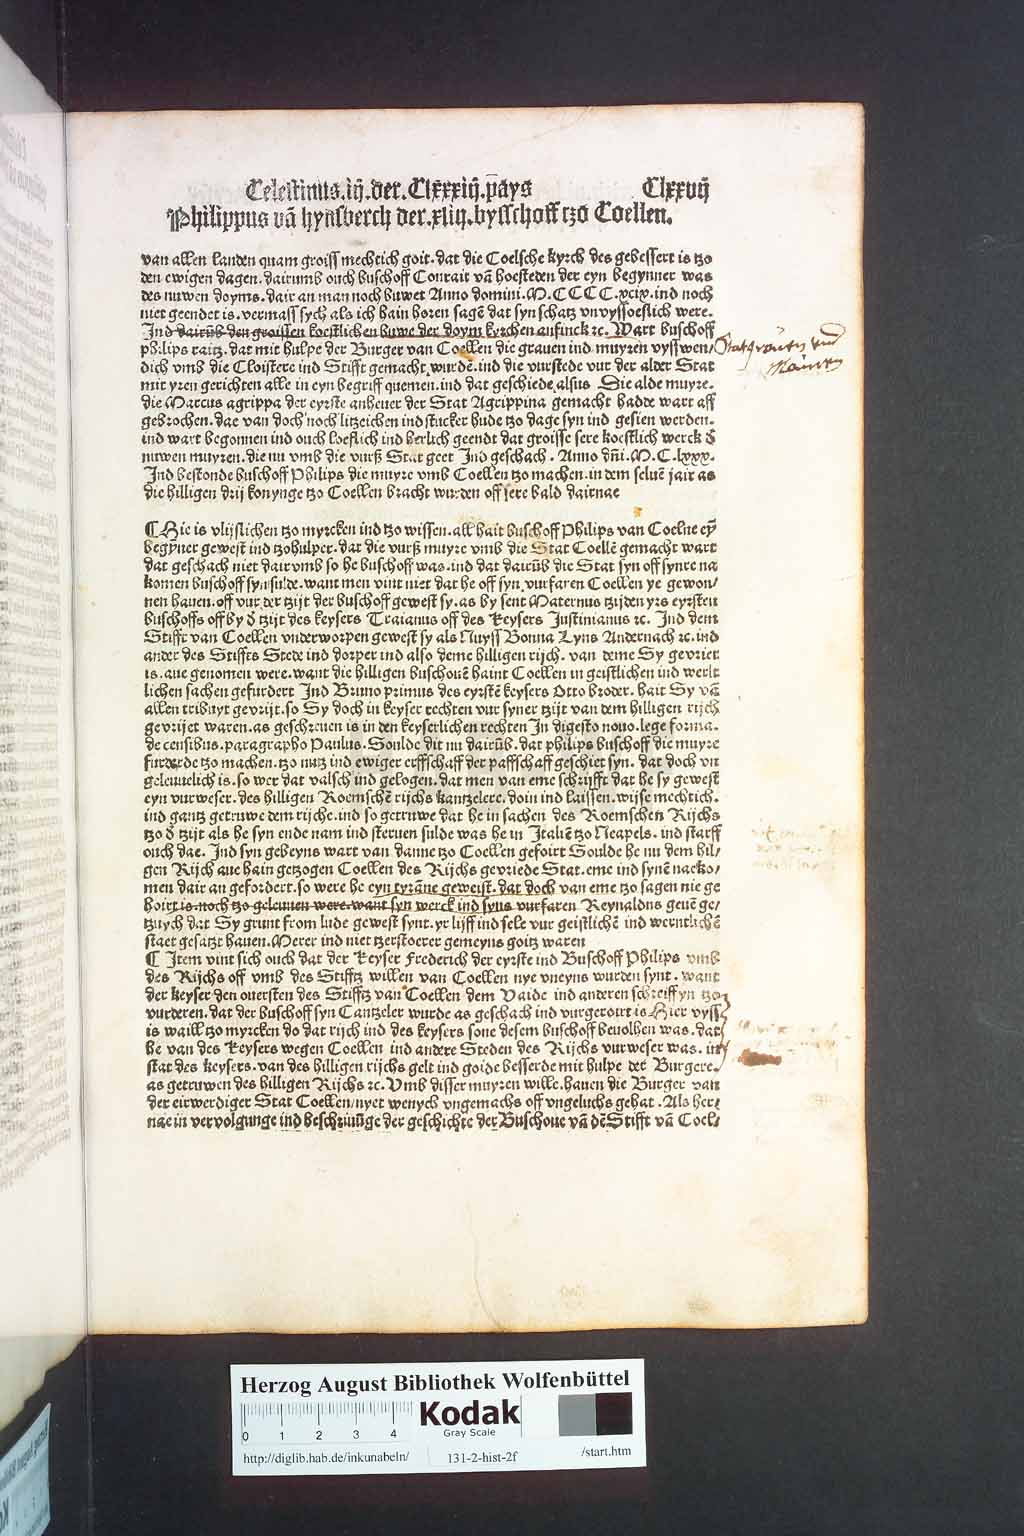 Celestinus.iij.der.Clxxxiij.pays Clxxvij
Philippus vā hynsberch der.xliij.bysschoff tzo Coellen.
van allen landen quam groiss mechtich goit.dat die Coelsche kyrch des gebessert is tzo
den ewigen dagen.dairumb ouch buschoff Conrait vā hoesteden der eyn begynner was
des nuwen doyms.dair an man noch buwet Anno domini.M.CCCC.xcix.ind noch
niet geendet is.vermass sych als ich hain horen sagē dat syn schatz vnvyssoeslich were.
Ind dairūb den groissen koestlichen buwe der doym kyrchen anfinck ꝛc. Wart buschoff
philips raitz.dat mit hulpe der Burger van Coellen die grauen ind muyren vysswen/
dich vmb die Cloistere ind Stifft gemacht wurdē.ind die vurstede vur der alder Stat
mit yren gerichten alle in eyn begriff quemen.ind dat geschiede alsus Die alde muyre.
die Marcus agrippa der eyrste anheuer der Stat Agrippina gemacht hadde wart aff
gebrochen.dae van doch noch litzeichen ind stucker hude tzo dage syn ind gesien werden.
ind wart begonnen ind ouch loeflich ind herlich geendt dat groisse sere koestlich werck d̄
nuwen muyren.die nu vmb die vurß Stat geet Ind geschach. Anno dn̄i.M.C.lxxx.
Ind bestonde buschoff Philips die muyre vmb Coellen tzo machen.in dem seluē jair as
die hilligen drij konynge tzo Coellen bracht wurden off sere bald dairnae
¶Hie is vlijslichen tzo myrcken ind tzo wissen.all hait buschoff Philips van Coelne eȳ
begȳner gewest ind tzohulper.dat die vurß muyre vmb die Stat Coellē gemacht wart
dat geschach niet dairvmb so he buschoff was.ind dat dairūb die Stat syn off synre na
komen buschoff syn sulde.want men vint niet dat he off syn vurfaren Coellen ye gewon/
nen hauen.off vur der tzijt der buschoff gewest sy.as by sent Maternus tzijden yrs eyrsten
buschoffs off by d̄ tzijt des keysers Traianus off des Keysers Justinianus ꝛc. Ind dem
Stifft van Coellen vnderworpen gewest sy als Nuyss Bonna Lyns Andernach ꝛc.ind
ander des Stiffts Stede ind dorper ind also deme hilligen rijch. van deme Sy gevriet
is.aue genomen were.want die hilligen buschouē haint Coellen in geistlichen ind werlt
lichen sachen gefurdert Ind Bruno primus des eyrstē keysers Otto broder. hait Sy vā
allen tribuyt gevrijt.so Sy doch in keyser rechten vur syner tzijt van dem hilligen rijch
gevrijet waren.as geschreuen is in den keyserlichen rechten In digesto nouo.lege forma.
de censibus.paragrapho Paulus. Soulde dit nu dairūb.dat philips buschoff die muyre
furderde tzo machen.tzo nutz ind ewiger erffschaff der paffschaff geschiet syn. dat doch vn
geleuuelich is.so wer dat valsch ind gelogen.dat men van eme schrijfft dat he sy gewest
eyn vurweser.des hilligen Roemschē rijchs kantzelere.doin ind laissen.wijse mechtich.
ind gantz getruwe dem rijche.ind so getruwe dat he in sachen des Roemschen Rijchs
tzo d̄ tzijt als he syn ende nam ind steruen sulde was he in Italiē tzo Neapels. ind starff
ouch dae. Ind syn gebeyns wart van danne tzo Coellen gefoirt Soulde he nu dem hil/
gen Rijch aue hain getzogen Coellen des Rijchs gevriede Stat.eme ind synē naeko/
men dair an gefordert.so were he eyn tyrāne geweist.dat doch van eme tzo sagen nie ge
hoirt is.noch tzo geleuuen were.want syn werck ind syns vurfaren Reynaldns geuē ge/
tzuych dat Sy grunt from lude gewest synt.yr lijff ind sele vur geistlichē ind werntlichē
staet gesatzt hauen.Merer ind niet tzerstoerer gemeyns goitz waren
¶ Item vint sich ouch dat der Keyser Frederich der eyrste ind Buschoff Philips vmb
des Rijchs off vmb des Stifftz willen van Coellen nye vneyns wurden synt. want
der keyser den ouersten des Stifftz van Coellen dem Vaide ind anderen schreiff yn tzo
vurderen.dat der buschoff syn Cantzeler wurde as geschach ind vurgeroirt is Hier vyss
is waill tzo myrcken do dat rijch ind des keysers sone desem buschoff beuolhen was.dat
he van des Keysers wegen Coellen ind andere Steden des Rijchs vurweser was. in
stat des keysers.van des hilligen rijchs gelt ind goide besserde mit hulpe der Burgere.
as getruwen des hilligen Rijchs ꝛc. Vmb disser muyren wille.hauen die Burger van
der eirwerdiger Stat Coellen/nyet wenych vngemachs off vngelucks gehat. Als her/
nae in vervolgunge ind beschriuūge der geschichte der Buschoue vā dē Stifft vā Coel/
Stat grauen vnd
Mauren
Herzog August Bibliothek Wolfenbüttel
0 1 2 3 4
Kodak
Gray Scale
http://diglib.hab.de/inkunabeln/ 131-2-hist-2f /start.htm